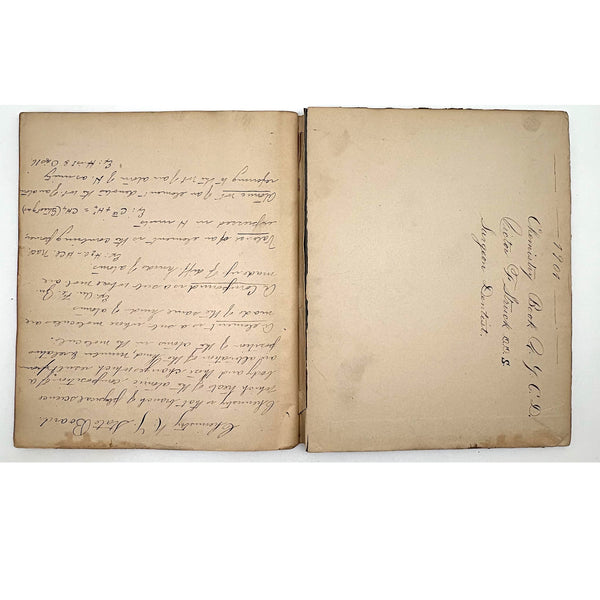 1901
Chemistry Book N.Y.C.D.
Victor F. Struck D.D.S.
Surgeon Dentist.
Chemistry N.Y. State Board.
Chemistry is that branch of physical science
which treats of the atomic composition of a
body and those changes which result from
an alteration of the kind number & relative
position of the atoms in the molecule.
A element is a sub whose molecules are
made of the same kind of atoms
A Compound is a sub whose mol are
made up of diff kinds of atoms
Eg: H2O HCl. NaCl
Valence of an element is the combining power,
expressed in H units
Atomic wt of an element denotes the wt of an atom
referring to the wt of an atom of H as unity
Eg: H wt is O wt 16